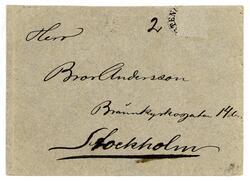 2
Herr
Bror Andersson
Brännkyrkogatan 14 c.
Stockholm